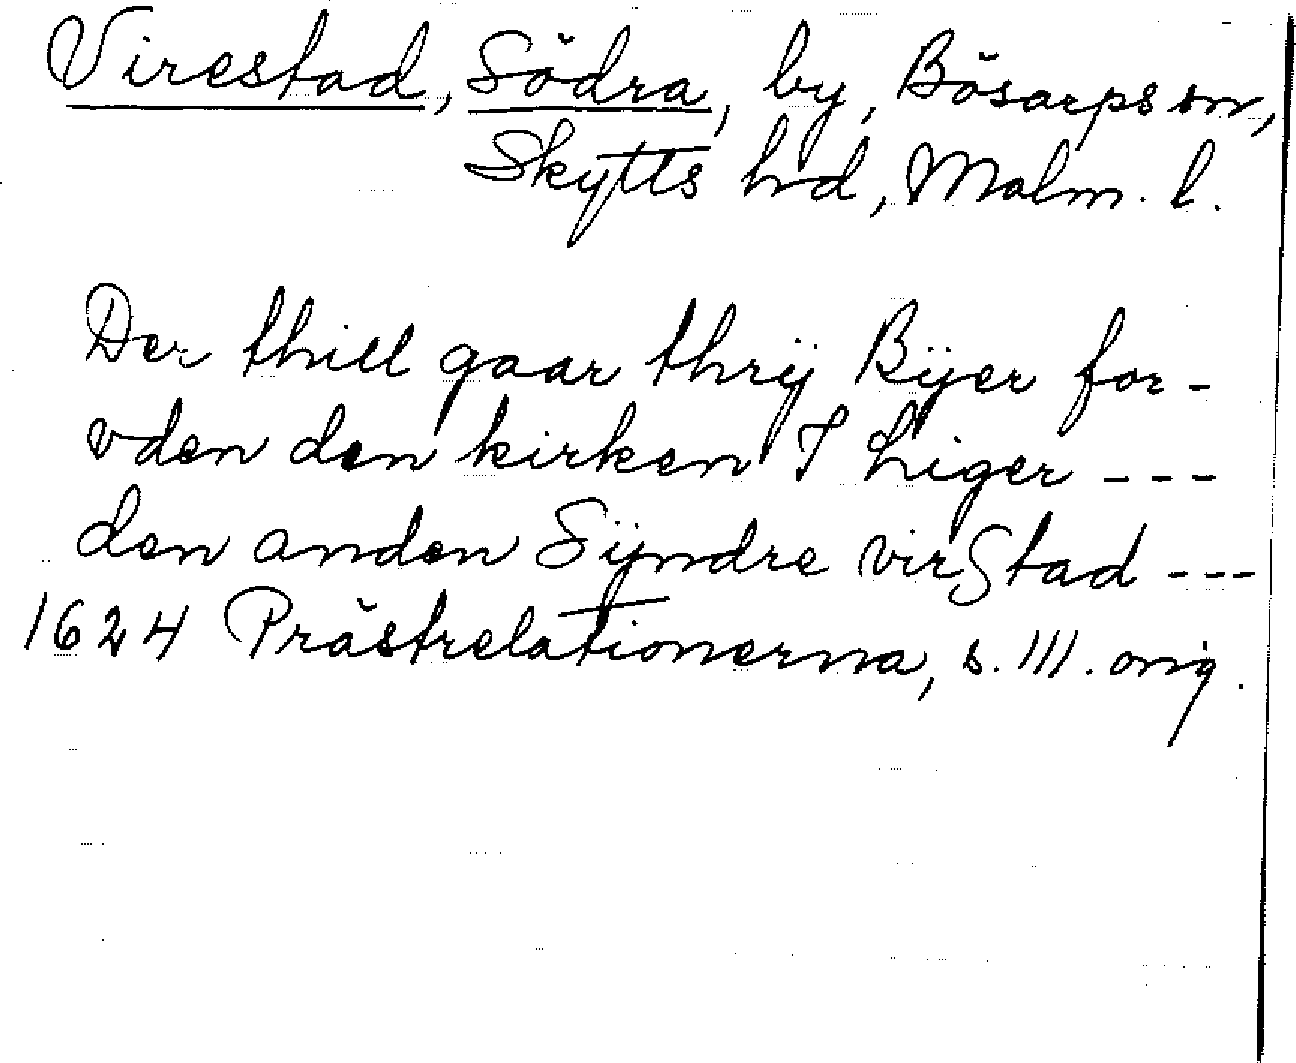 Virestad, Södra, by, Bösarps sn,
Skytts hd, Malm. l.
Der thill gaar thrÿ Bÿer for-
vden den kirken I Liger ---
den anden Sÿndre virStad ---
1624 Prästrelationerna, s. 111. orig.